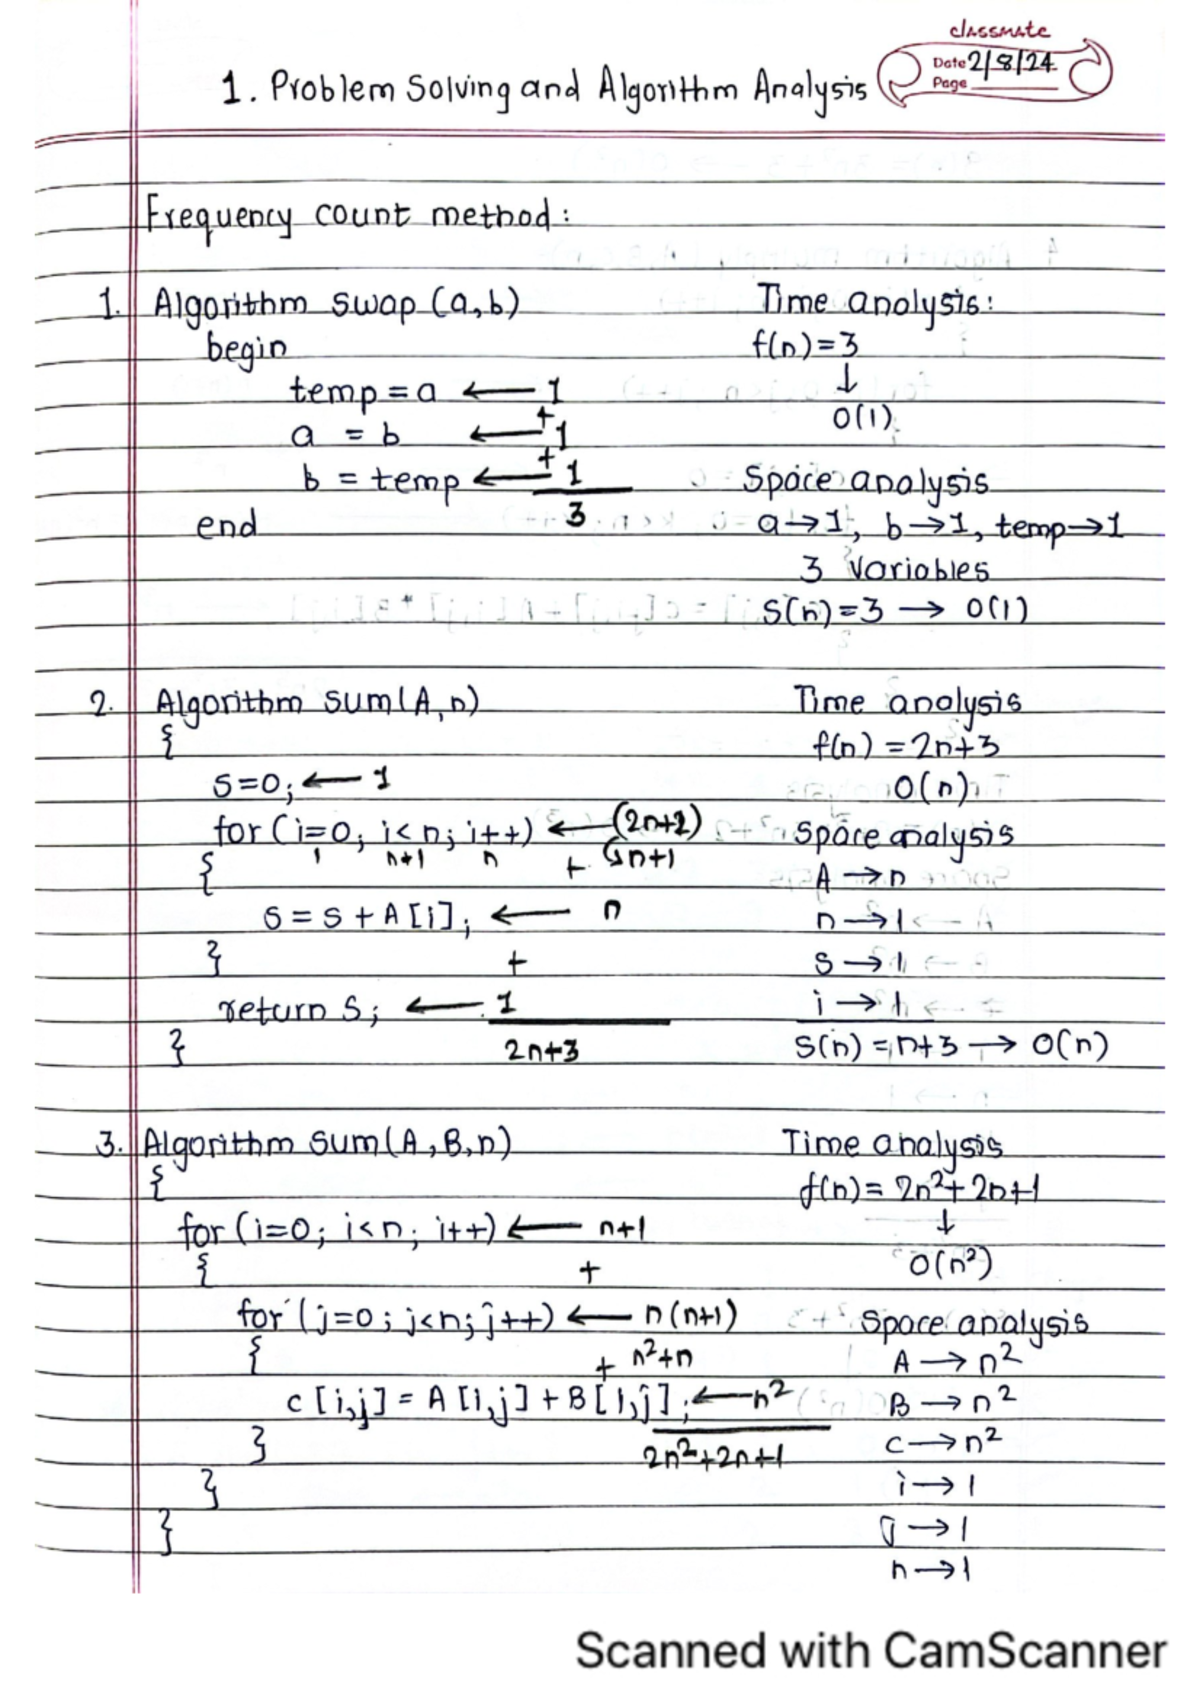 classmate
Date 2/8/24
Page
1. Problem Solving and Algorithm Analysis
Frequency count method:
1. Algorithm swap (a,b)
begin
temp = a ← 1
+
a = b ← 1
+
b = temp ← 1
3
end
Time analysis:
f(n)=3
↓
O(1)
Space analysis
a→1, b→1, temp→1
3 variables
S(n)=3 → O(1)
2. Algorithm sum(A,n)
{
S=0; ← 1
for (i=0; i<n; i++) ← (2n+2)
1 n+1 n + n+1
{
S = S + A[i]; ← n
} +
return S; ← 1
} 2n+3
Time analysis
f(n) = 2n+3
O(n)
Space analysis
A → n
n → 1
S → 1
i → 1
S(n) = n+3 → O(n)
3. Algorithm sum(A,B,n)
{
for (i=0; i<n; i++) ← n+1
{ +
for (j=0; j<n; j++) ← n(n+1)
{ + n²+n
c[i,j] = A[i,j] + B[i,j]; ← n²
} 2n²+2n+1
}
}
Time analysis
f(n) = 2n²+2n+1
↓
O(n²)
Space analysis
A → n²
B → n²
C → n²
i → 1
j → 1
n → 1
Scanned with CamScanner